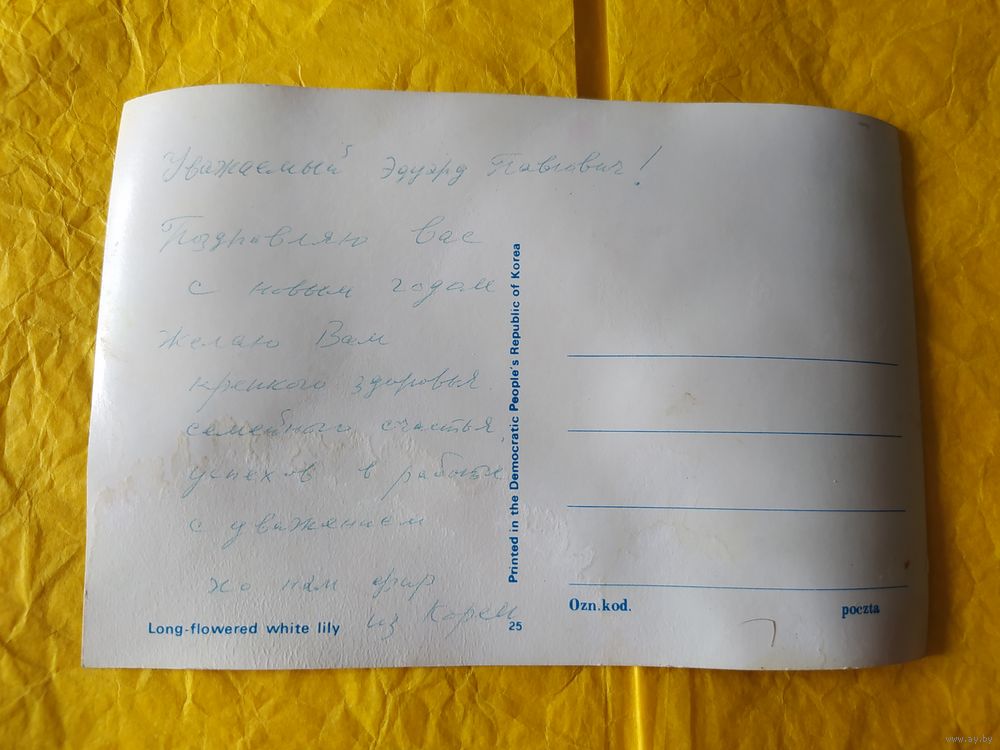 Уважаемый Эдуард Павлович!
Поздравляю Вас
с новым годом
Желаю Вам
крепкого здоровья.
семейного счастья,
успехов в работе
с уважением
хо нам
из Кореи
Long-flowered white lily
25
Printed in the Democratic People's Republic of Korea
Ozn.kod.
poczta
www.ay.by